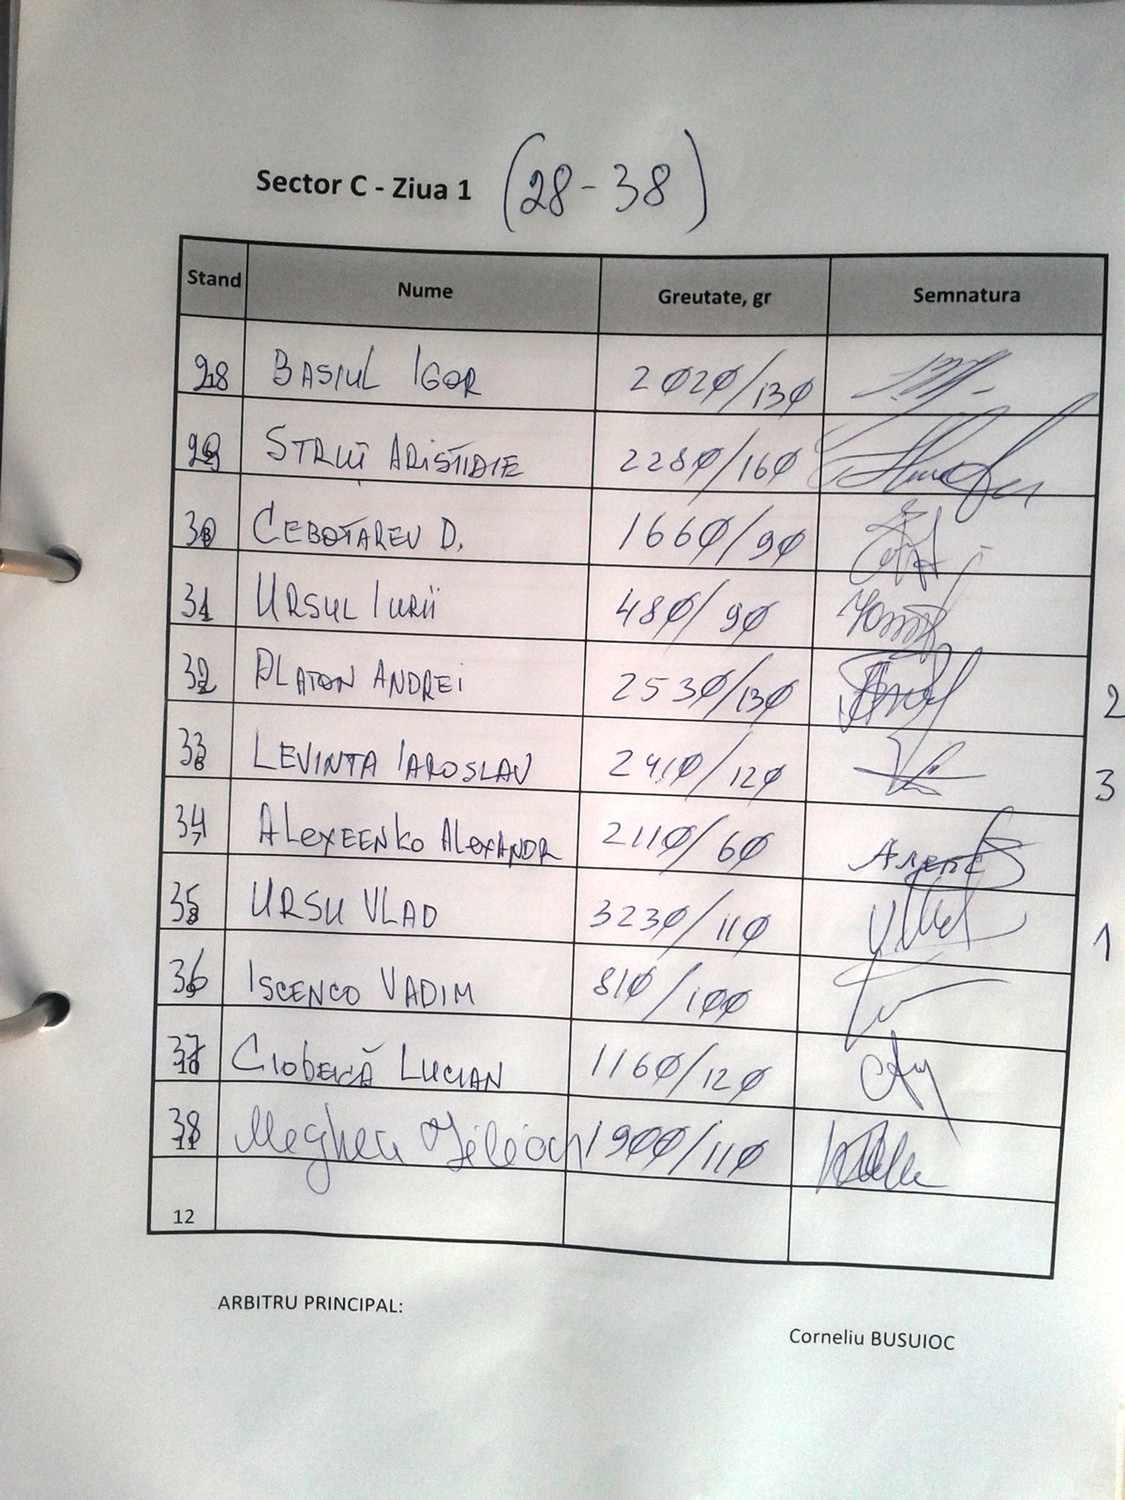 Sector C - Ziua 1 (28-38)
Stand Nume Greutate, gr Semnatura
28 BASIUL IGOR 2020/130
29 STRUȚ ARISTIDIE 2280/160
30 CEBOTAREU D. 1660/90
31 URSUL IURII 480/90
32 PLATON ANDREI 2530/130 2
33 LEVINTA IAROSLAV 2410/120 3
34 ALEXEENKO ALEXANDR 2110/60
35 URSU VLAD 3230/110 1
36 ISCENCO VADIM 810/100
37 CIOBEICĂ LUCIAN 1160/120
38 1900/110
12
ARBITRU PRINCIPAL:
Corneliu BUSUIOC